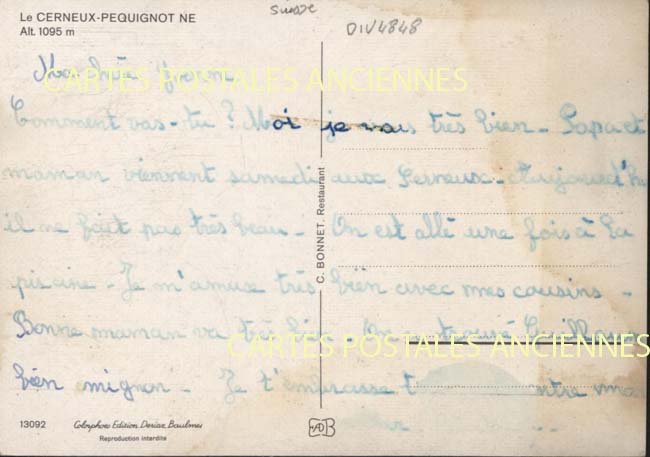 Le CERNEUX-PEQUIGNOT NE
Alt. 1095 m
Suisse
DIV4848
CARTES POSTALES ANCIENNES
Comment vas-tu ? Moi je vais très bien - Papa et
maman viennent samedi aux Cerneux - Aujourd'hu
il ne fait pas très beau - On est allé une fois à la
piscine - Je m'amuse très bien avec mes cousins -
Bonne maman va très On a trouvé
CARTES POSTALES ANCIENNES
bien mignon - Je t'embrasse
C. BONNET, Restaurant
13092
Colorphoto Edition Deriaz Baulmes
Reproduction interdite